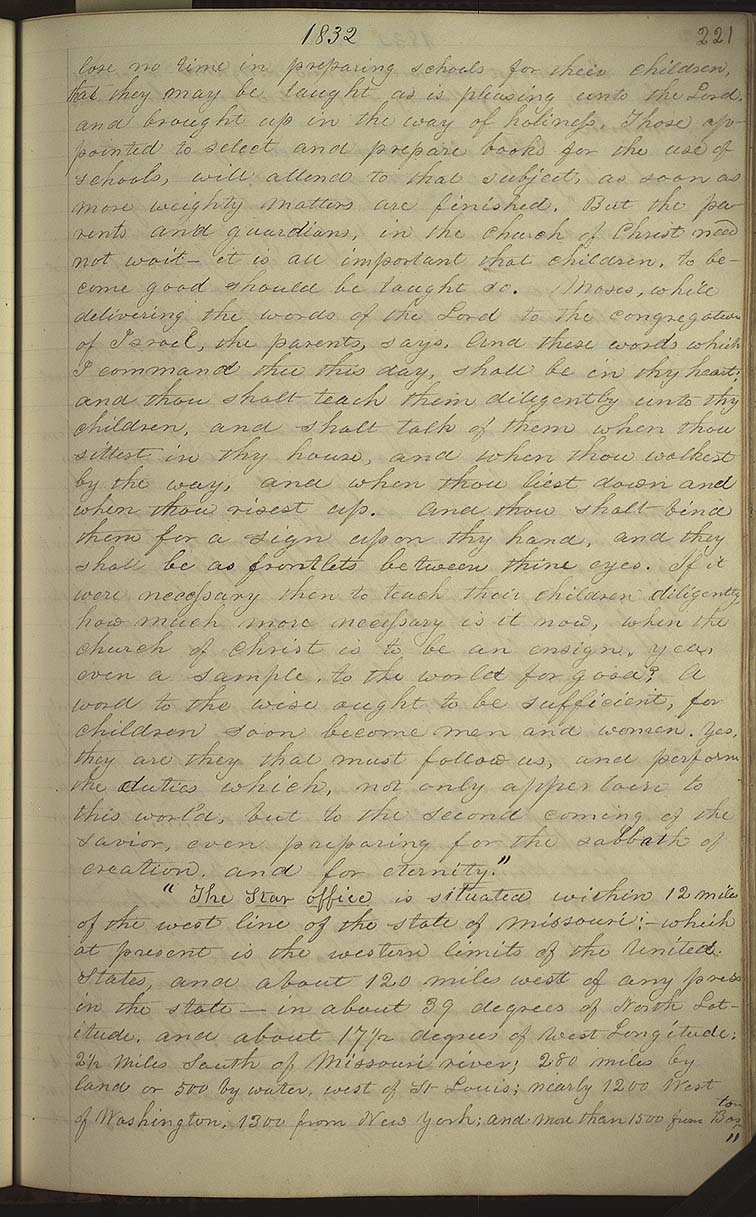 1832
221
lose no time in preparing schools for their children,
that they may be taught as is pleasing unto the Lord,
and brought up in the way of holiness. Those ap-
pointed to select and prepare books for the use of
schools, will attend to that subject, as soon as
more weighty matters are finished. But the pa-
rents and guardians, in the church of Christ need
not wait— it is all important that children, to be-
come good should be taught so. Moses, while
delivering the words of the Lord to the congregation
of Israel, the parents, says, And these words which
I command thee this day, shall be in thy heart;
and thou shalt teach them diligently unto thy
children, and shalt talk of them when thou
sittest in thy house, and when thou walkest
by the way, and when thou liest down and
when thou risest up. And thou shalt bind
them for a sign upon thy hand, and they
shall be as frontlets between thine eyes. If it
were necessary then to teach their children diligently,
how much more necessary is it now, when the
church of Christ is to be an ensign, yea,
even a sample, to the world for good? A
word to the wise ought to be sufficient, for
children soon become men and women. Yes,
they are they that must follow us, and perform
the duties which, not only appertain to
this world, but to the second coming of the
Savior, even preparing for the sabbath of
creation, and for eternity."
"The Star office is situated within 12 miles
of the west line of the state of Missouri;— which
at present is the western limits of the United
States, and about 120 miles west of any press
in the state— in about 39 degrees of North Lat-
itude, and about 17½ degrees of West Longitude;
2½ miles South of Missouri river; 280 miles by
land or 500 by water, west of St Louis; nearly 1200 West
of Washington, 1300 from New York; and more than 1500 from Bos
ton
"